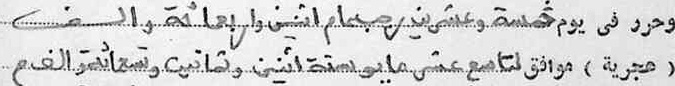 وحرر فى يوم خمسة وعشرين رجب عام اثنين واربعمائة والف
( هجرية ) موافق لتاسع عشر مايو سنة اثنين وثمانين وتسعمائة والف م